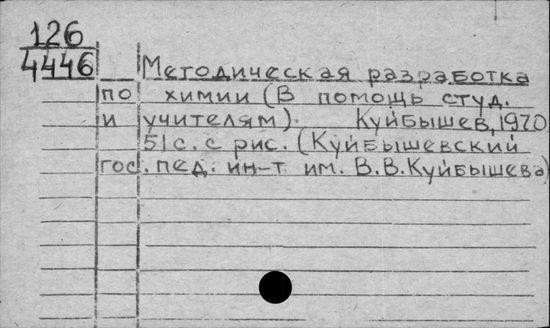 126
4446
Методическая разработка
по химии (В помощь студ.
и учителям). Куйбышев, 1970
51 с. с рис. (Куйбышевский
гос. пед. ин-т им. В.В.Куйбышева)